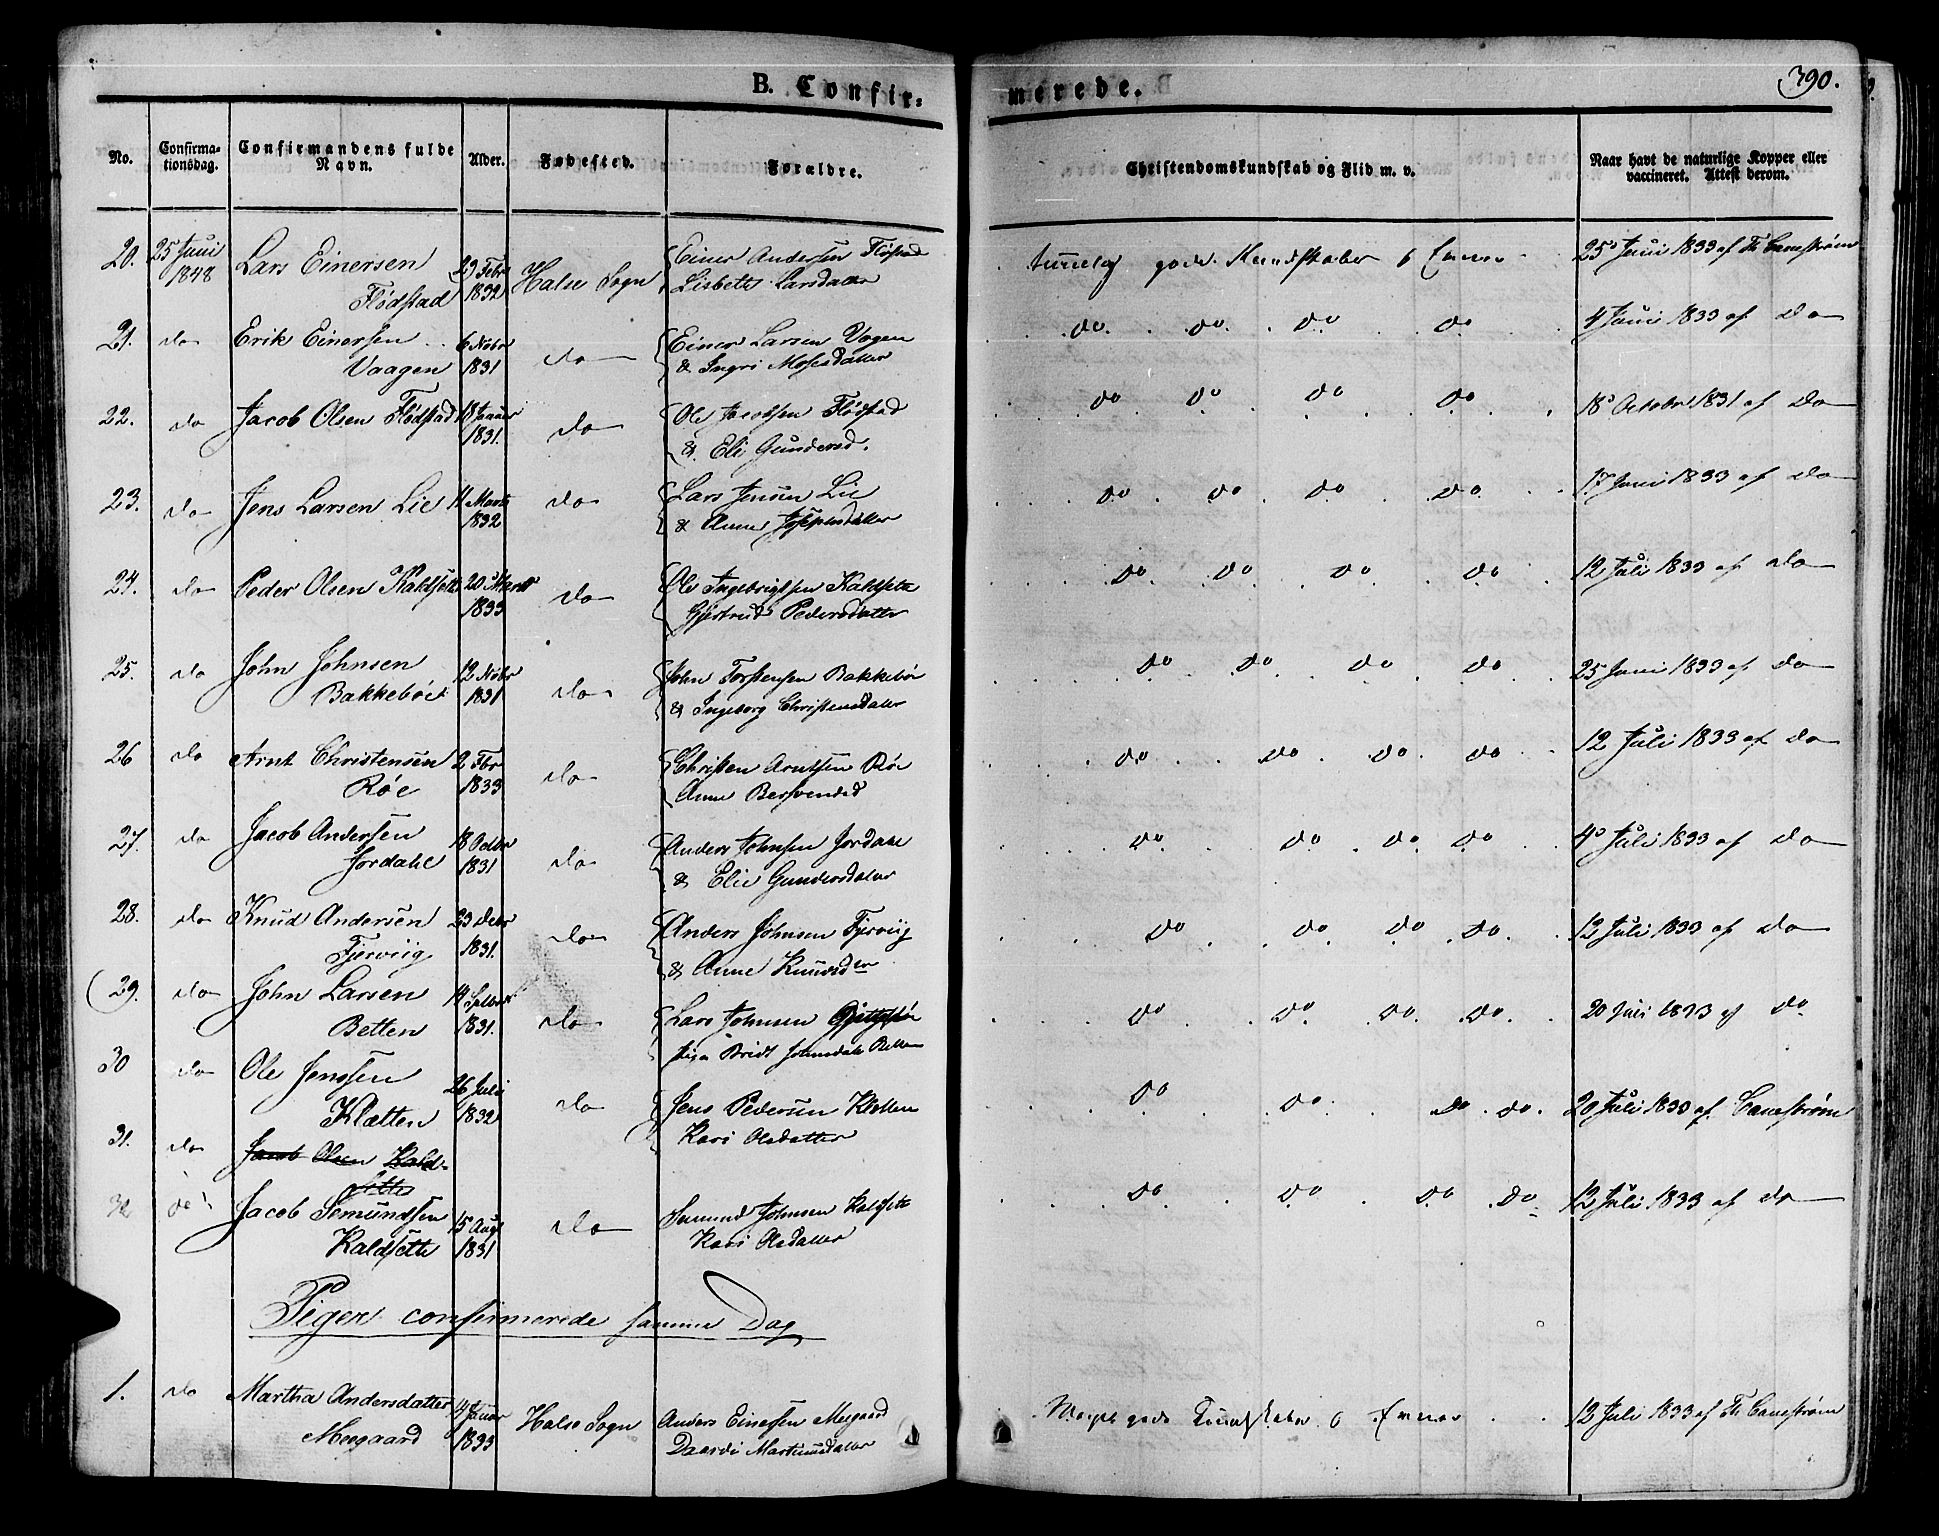 B. Confir=
merede.
390.
No.
Confirma-
tionsdag.
Confirmandens fulde
Navn.
Alder.
Fødested.
Forældre.
Christendomskundskab og Flid m. v.
Naar havt de naturlige Kopper eller
vaccineret. Attest derom.
20. 25 Juni 1848 Lars Einersen Flødstad 29 Febr 1832 Halse Sogn Einer Andersen Flødstad
Lisbeth Larsdatter
gode Kundskaber & Evner 25 Juni 1833 af Th Canestrøm
21. do Erik Einersen Vaagen 6 Nobr 1831 do Einer Larsen Vogen
& Ingri Mosesdatter
do. do. do do 4 Juni 1833 af do
22. do Jacob Olsen Flødstad 18 Januar 1831. do Ole Jacobsen Flødstad
& Eli Gundersd.
do do do do 18 October 1831 af do
23. do Jens Larsen Lie 11 Marts 1832 do Lars Jensen Lie
& Anne Josephsdatter
do do do do 17 Juni 1833 af do
24. do Peder Olsen Kaldsette 20 Marts 1833 do Ole Ingebrigtsen Kaldsete
Gjertrud Pedersdatter
do. do do do 12 Juli 1833 af do
25. do John Johnsen Bakkebøe 12 Nobr 1831 do John Torstensen Bakkebøe
& Ingeborg Christensdatter
do do do do 25 Juni 1833 af do
26 do Arnt Christensen Røe 2 Fbr 1833 do Christen Arntsen Røe
Anne Bersvendsd
do do do do 12 Juli 1833 af do
27. do Jacob Andersen Jordahl 18 Octbr 1831 do Anders Johnsen Jordahl
& Elie Gundersdatter
do do do do 4 Juli 1833 af do
28. do Knud Andersen Fjerviig 23 Debr 1831. do Anders Johnsen Fjerviig
& Anne Knudsd
do do do do. 12 Juli 1833 af do
29. do John Larsen Betten 14 1831. do Lars Johnsen
Pige Bridt Johnsdatr Betten
do do do do 20 Juli 1833 af do
30 do Ole Jenssen Klætten 26 Juli 1832 do Jens Pedersen Kletten
Kari Olsdatter
do do do do. 20 Juli 1833 af Canestrøm
31. do Jacob Olsen Kald-
sette
32 do Jacob Semundsen Kaldsette 15 Aug 1831 do Semund Johnsen Kaldsete
Kari Olsdatter
do do do do 12 Juli 1833 af do
Piger confirmerede samme Dag
1. do Martha Andersdatter Meegaard 4 Januar 1833 Halse Sogn Anders Einersen Meegaard
Martinusdatter
Meget gode Kundskaber & Evner 12 Juli 1833 af Th Canestrøm